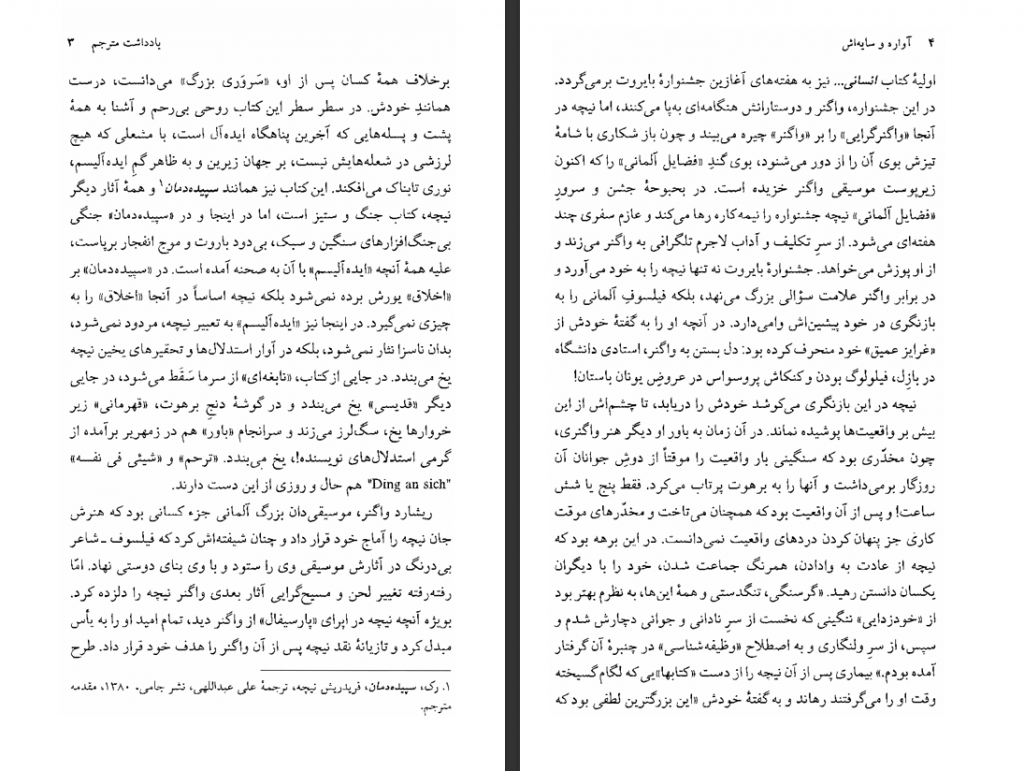 یادداشت مترجم ۳
برخلاف همهٔ کسان پس از او، «سَروَری بزرگ» می‌دانست، درست
همانندِ خودش. در سطر سطر این کتاب روحی بی‌رحم و آشنا به همهٔ
پشت و پسله‌هایی که آخرین پناهگاه ایده‌آل است، با مشعلی که هیچ
لرزشی در شعله‌هایش نیست، بر جهان زیرین و به ظاهر گمِ ایده‌آلیسم،
نوری تابناک می‌افکند. این کتاب نیز همانند سپیده‌دمان۱ و همهٔ آثار دیگر
نیچه، کتاب جنگ و ستیز است، اما در اینجا و در «سپیده‌دمان» جنگی
بی‌جنگ‌افزارهای سنگین و سبک، بی‌دود باروت و موج انفجار برپاست،
علیه همهٔ آنچه «ایده‌آلیسم» با آن به صحنه آمده است. در «سپیده‌دمان» بر
«اخلاق» یورش برده نمی‌شود بلکه نیچه اساساً در آنجا «اخلاق» را به
چیزی نمی‌گیرد. در اینجا نیز «ایده‌آلیسم» به تعبیر نیچه، مردود نمی‌شود،
بدان ناسزا نثار نمی‌شود، بلکه در آوار استدلال‌ها و تحقیرهای یخین نیچه
یخ می‌بندد. در جایی از کتاب، «نابغه‌ای» از سرما سَقَط می‌شود، در جایی
دیگر «قدیسی» یخ می‌بندد و در گوشهٔ دنجِ برهوت، «قهرمانی» زیر
خروارها یخ، سگ‌لرز می‌زند و سرانجام «باور» هم در زمهریر برآمده از
گرمی استدلال‌های نویسنده!، یخ می‌بندد. «ترحم» و «شیئی فی نفسه»
"Ding an sich" هم حال و روزی از این دست دارند.
ریشارد واگنر، موسیقی‌دان بزرگ آلمانی جزء کسانی بود که هنرش
جان نیچه را آماج خود قرار داد و چنان شیفته‌اش کرد که فیلسوف ـ شاعر
بی‌درنگ در آثارش موسیقی وی را ستود و با وی بنای دوستی نهاد. امّا
رفته‌رفته تغییر لحن و مسیح‌گرایی آثار بعدی واگنر نیچه را دلزده کرد.
بویژه آنچه نیچه در اپرای «پارسیفال» از واگنر دید، تمام امید او را به یأس
مبدل کرد و تازیانهٔ نقد نیچه پس از آن واگنر را هدف خود قرار داد. طرح
۱. رک، سپیده‌دمان، فریدریش نیچه، ترجمهٔ علی عبداللهی، نشر جامی. ۱۳۸۰، مقدمه
مترجم.
۴ آواره و سایه‌اش
اولیهٔ کتاب انسانی... نیز به هفته‌های آغازین جشنوارهٔ بایروت برمی‌گردد.
در این جشنواره، واگنر و دوستارانش هنگامه‌ای به‌پا می‌کنند، اما نیچه در
آنجا «واگنرگرایی» را بر «واگنر» چیره می‌بیند و چون باز شکاری با شامهٔ
تیزش بوی آن را از دور می‌شنود، بوی گندِ «فضایل آلمانی» را که اکنون
زیرپوست موسیقی واگنر خزیده است. در بحبوحهٔ جشن و سرورِ
«فضایل آلمانی» نیچه جشنواره را نیمه‌کاره رها می‌کند و عازم سفری چند
هفته‌ای می‌شود. از سرِ تکلیف و آداب لاجرم تلگرافی به واگنر می‌زند و
از او پوزش می‌خواهد. جشنوارهٔ بایروت نه تنها نیچه را به خود می‌آورد و
در برابر واگنر علامت سؤالی بزرگ می‌نهد، بلکه فیلسوفِ آلمانی را به
بازنگری در خود پیشین‌اش وامی‌دارد. در آنچه او را به گفتهٔ خودش از
«غرایز عمیق» خود منحرف کرده بود: دل بستن به واگنر، استادی دانشگاه
در بازِل، فیلولوگ بودن و کنکاش پروسواس در عروضِ یونان باستان!
نیچه در این بازنگری می‌کوشد خودش را دریابد، تا چشم‌اش از این
بیش بر واقعیت‌ها پوشیده نماند. در آن زمان به باور او دیگر هنر واگنری،
چون مخدّری بود که سنگینی بار واقعیت را موقتاً از دوشِ جوانان آن
روزگار برمی‌داشت و آنها را به برهوت پرتاب می‌کرد. فقط پنج یا شش
ساعت! و پس از آن واقعیت بود که همچنان می‌تاخت و مخدّرهای موقت
کاری جز پنهان کردن دردهای واقعیت نمی‌دانست. در این برهه بود که
نیچه از عادت به وادادن، همرنگ جماعت شدن، خود را با دیگران
یکسان دانستن رهید. «گرسنگی، تنگدستی و همهٔ این‌ها، به نظرم بهتر بود
از «خودزدایی» ننگینی که نخست از سرِ نادانی و جوانی دچارش شدم و
سپس، از سرِ ولنگاری و به اصطلاح «وظیفه‌شناسی» در چنبرهٔ آن گرفتار
آمده بودم.» بیماری پس از آن نیچه را از دست «کتابها»یی که لگام گسیخته
وقت او را می‌گرفتند رهاند و به گفتهٔ خودش «این بزرگترین لطفی بود که